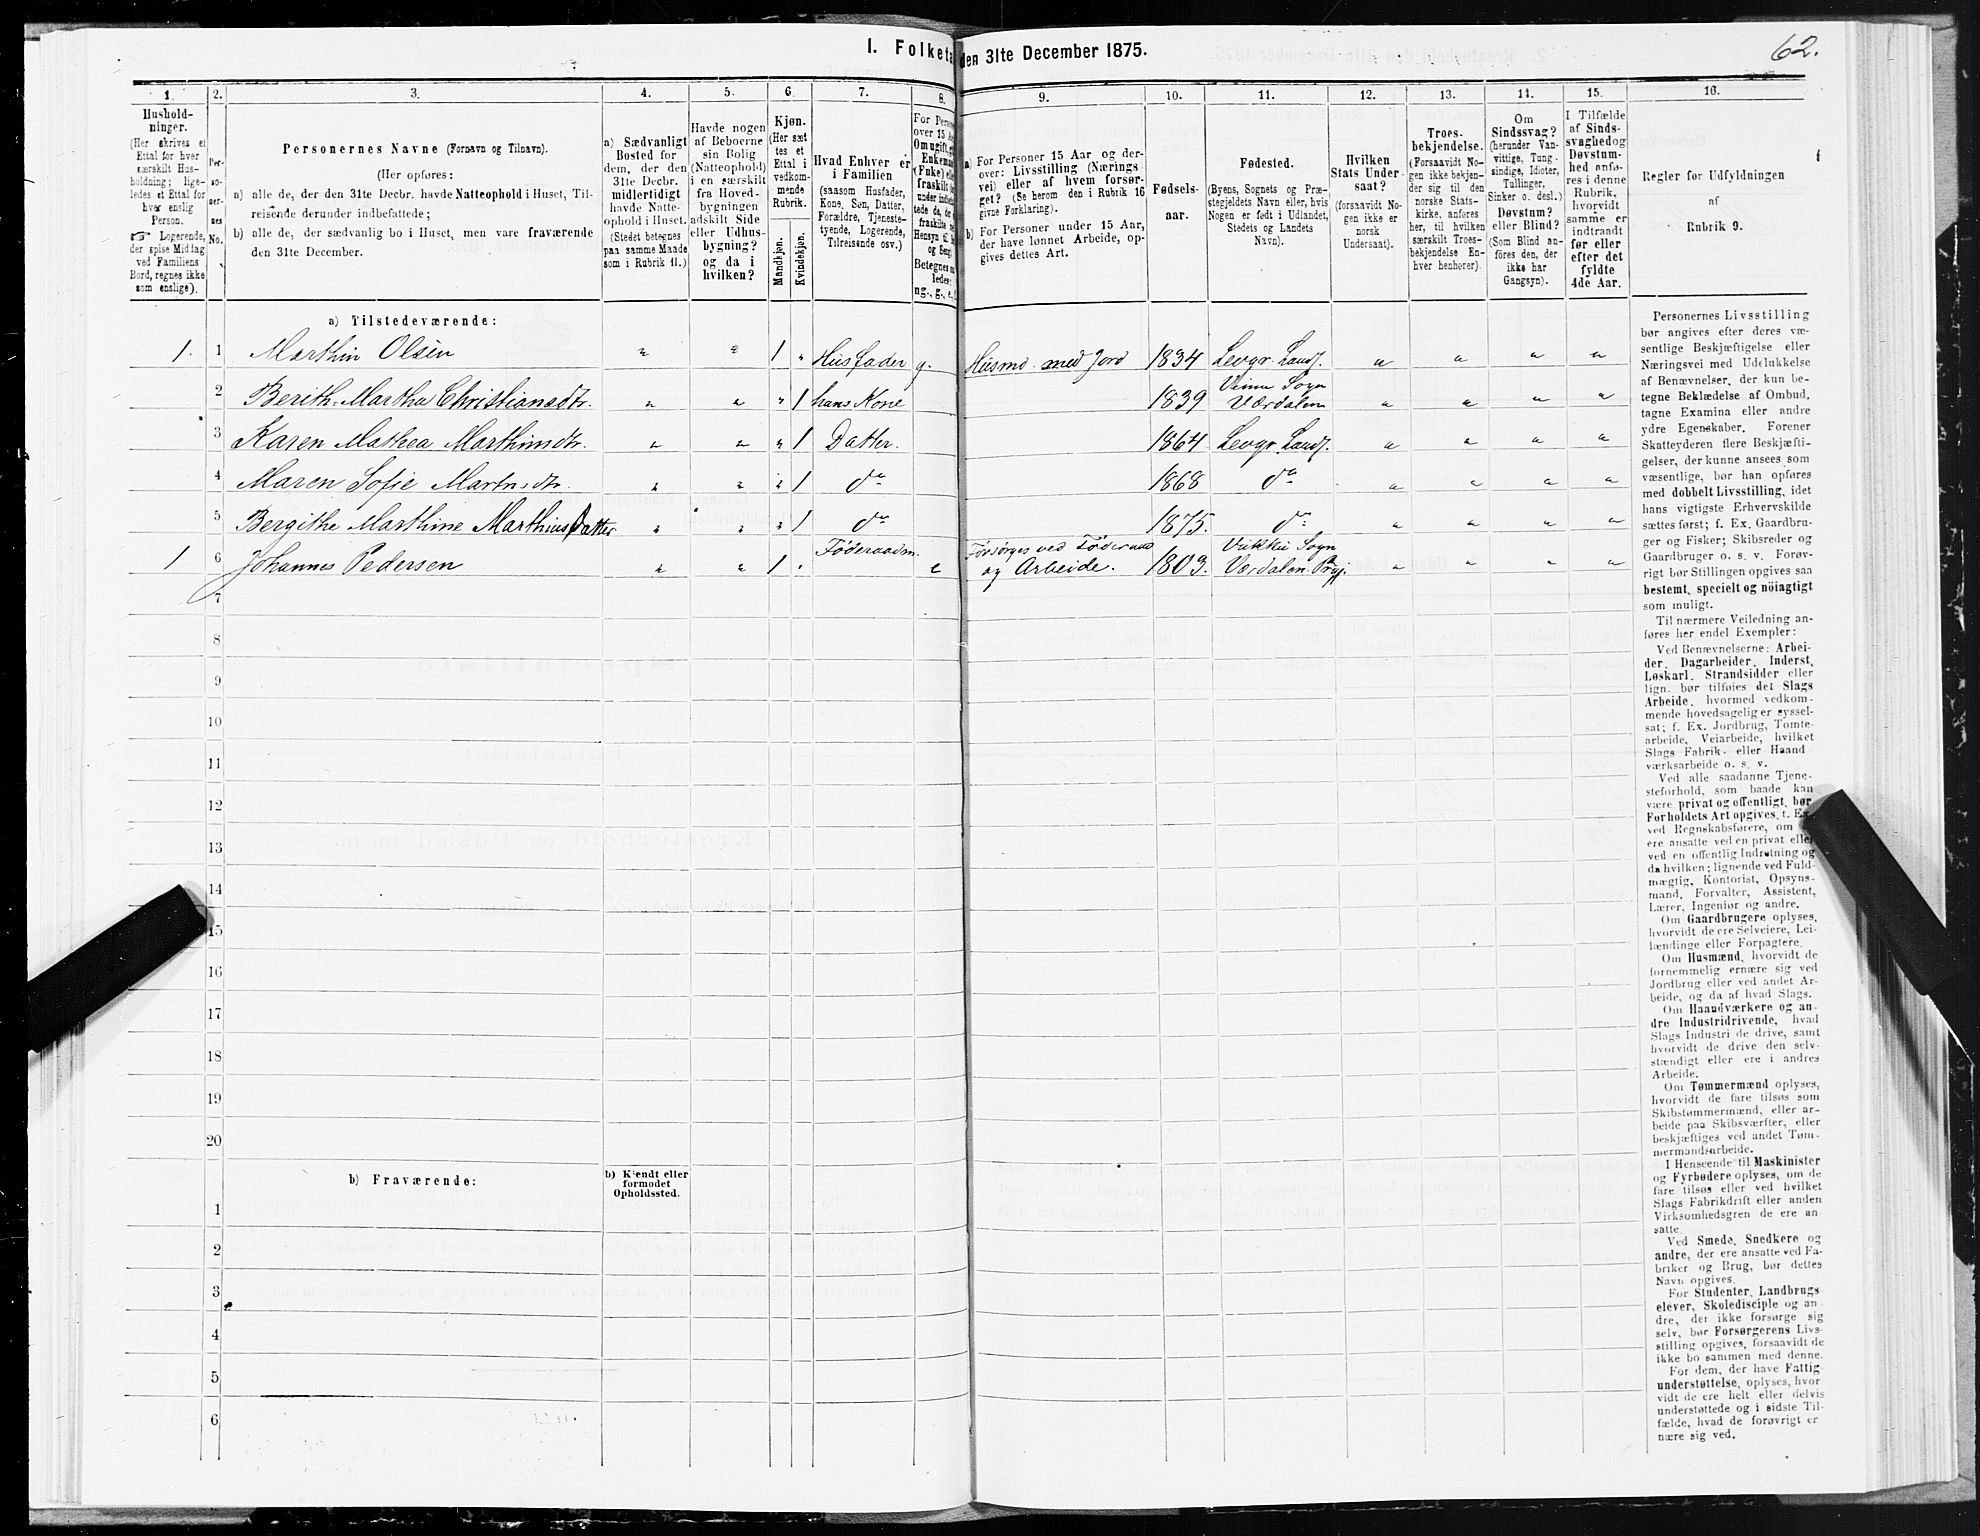 I. Folketa
den 31te December 1875.
62.
1.
2.
3.
4.
5.
6.
7.
8.
9.
10.
11.
12.
13.
14.
15.
16.
Hushold-
ninger.
(Her skrives et
Ettal for hver
særskilt Hus-
holdning; lige-
ledes et Ettal for
hver enslig
Person.
☞ Logerende,
der spise Middag
ved Familiens
Bord, regnes ikke
som enslige).
Per-
so-
ner-
nes
No.
Personernes Navne (Fornavn og Tilnavn).
(Her opføres:
a) alle de, der den 31te Decbr. havde Natteophold i Huset, Til-
reisende derunder indbefattede;
b) alle de, der sædvanlig bo i Huset, men vare fraværende
den 31te December.
a) Sædvanligt
Bosted for
dem, der den
31te Decbr.
midlertidigt
havde Natte-
ophold i Huset.
(Stedet betegnes
paa samme Maade
som i Rubrik 11.)
Havde nogen
af Beboerne
sin Bolig
(Natteophold)
i en særskilt
fra Hoved-
bygningen
adskilt Side
eller Udhus-
bygning?
og da i
hvilken?
Kjøn.
(Her sæt
tes et
Ettal i
vedkom-
mende
Rubrik.
Mandkjøn.
Kvindekjøn.
Hvad Enhver er
i Familien
(saasom Husfader,
Kone, Søn, Datter,
Forældre, Tjeneste-
tyende, Logerende,
Tilreisende osv.)
For Perso
over 15 Aa
Om ugift, g
Enkeman
(Enke) elle
fraskilt
under indbe
tede de, der
fraskilte
Hensyn til
og Seng
Betegnes
ledes:
ug., g., e.,
a) For Personer 15 Aar og der-
over: Livsstilling (Nærings-
vei) eller af hvem forsør-
get? (Se herom den i Rubrik 16
givne Forklaring).
b) For Personer under 15 Aar,
der have lønnet Arbeide, op-
gives dettes Art.
Fødsels-
aar.
Fødested.
(Byens, Sognets og Præ-
stegjeldets Navn eller, hvis
Nogen er født i Udlandet,
Stedets og Landets
Navn).
Hvilken
Stats Under-
saat?
(forsaavidt No-
gen ikke er
norsk
Undersaat).
Troes-
bekjendelse.
(Forsaavidt No-
gen ikke bekjen-
der sig til den
norske Stats-
kirke, anføres
her, til hvilken
særskilt Troes-
bekjendelse En-
hver henhører).
Om
Sindssvag?
(herunder Van-
vittige, Tung-
sindige, Idioter,
Tullinger,
Sinker o. desl.)
Døvstum?
eller Blind?
(Som Blind an-
føres den, der
ikke har
Gangsyn).
I Tilfælde
af Sinds-
svaghed og
Døvstum-
hed anfø-
res i denne
Rubrik,
hvorvidt
samme er
indtraadt
før eller
efter det
fyldte
4de Aar.
Regler for Udfyldningen
af
Rubrik 9.
a) Tilstedeværende:
1. 1 Marthin Olsen " " 1 " Husfader g. Husmd. med Jord 1834 Levgr. Lands. " " " "
2 Berith Martha Christiansdtr. " " " 1 hans Kone 1839 Vinne Sogn Værdalen " " " "
3 Karen Mathea Marthinsdtr. " " " 1 Datter. 1864 Levgr. Lands. " " " "
4 Maren Sofie Martnsdtr. " " " 1 do 1868 do " " " "
5 Bergithe Marthine Marthinsdatter " " " 1 do 1875. do " " " "
1 6 Johannes Pedersen " " 1 . Føderaadm. e Forsørges ved Føderaad og Arbeide. 1803. Vukku Sogn Værdalen Prgj. " " " "
7
8
9
10
11
12
13
14
15
16
17
18
19
20
b) Fraværende:
b) Kjendt eller
formodet
Opholdssted.
1
2
3
4
5
6
Personernes Livsstilling
bør angives efter deres væ-
sentlige Beskjæftigelse eller
Næringsvei med Udelukkelse
af Benævnelser, der kun be-
tegne Beklædelse af Ombud,
tagne Examina eller andre
ydre Egenskaber. Forener
Skatteyderen flere Beskjæfti-
gelser, der kunne ansees som
væsentlige, bør han opføres
med dobbelt Livsstilling, idet
hans vigtigste Erhvervskilde
sættes først; f. Ex. Gaardbru-
ger og Fisker; Skibsreder og
Gaardbruger o. s. v. Forøv-
rigt bør Stillingen opgives saa
bestemt, specielt og nöiagtigt
som muligt.
Til nærmere Veiledning an-
føres her endel Exempler:
Ved Benævnelserne: Arbei-
der, Dagarbeider, Inderst,
Løskarl, Strandsidder eller
lign. bør tilføies det Slags
Arbeide, hvormed vedkom-
mende hovedsagelig er syssel-
sat; f. Ex. Jordbrug, Tomte-
arbeide, Veiarbeide, hvilket
Slags Fabrik- eller Haand
værksarbeide o. s. v.
Ved alle saadanne Tjene-
steforhold, som baade kan
være privat og offentligt, bør
Forholdets Art opgives, f. Ex.
ved Regnskabsførere, om
ere ansatte ved en privat eller
ved en offentlig Indretning og
da hvilken; lignende ved Fuld-
mægtig, Kontorist, Opsyns-
mand, Forvalter, Assistent,
Lærer, Ingeniør og andre.
Om Gaardbrugere oplyses,
hvorvidt de ere Selveiere, Lei-
lændinge eller Forpagtere.
Om Husmænd, hvorvidt de
fornemmelig ernære sig ved
Jordbrug eller ved andet Ar-
beide, og da af hvad Slags.
Om Haandværkere og an-
dre Industridrivende, hvad
Slags Industri de drive, samt
hvorvidt de drive den selv-
stændigt eller ere i andres
Arbeide.
Om Tømmermænd oplyses,
hvorvidt de fare tilsøs som
Skibstømmermænd, eller ar-
beide paa Skibsværfter, eller
beskjæftiges ved andet Tøm-
mermandsarbeide.
I Henseende til Maskinister
og Fyrbødere oplyses, om de
fare tilsøs eller ved hvilket
Slags Fabrikdrift eller anden
Virksomhedsgren de ere an-
satte.
Ved Smede, Snedkere og
andre, der ere ansatte ved Fa-
briker og Brug, bør dettes
Navn opgives.
For Studenter, Landbrugs
elever, Skoledisciple og an-
dre, der ikke forsørge sig
selv, bør Forsørgerens Livs-
stilling opgives, forsaavidt de
ikke bo sammen med denne.
For dem, der have Fattig-
understøttelse, oplyses, hvor
vidt de ere helt eller delvis
understøttede og i sidste Til-
fælde, hvad de forøvrigt er
nære sig ved.